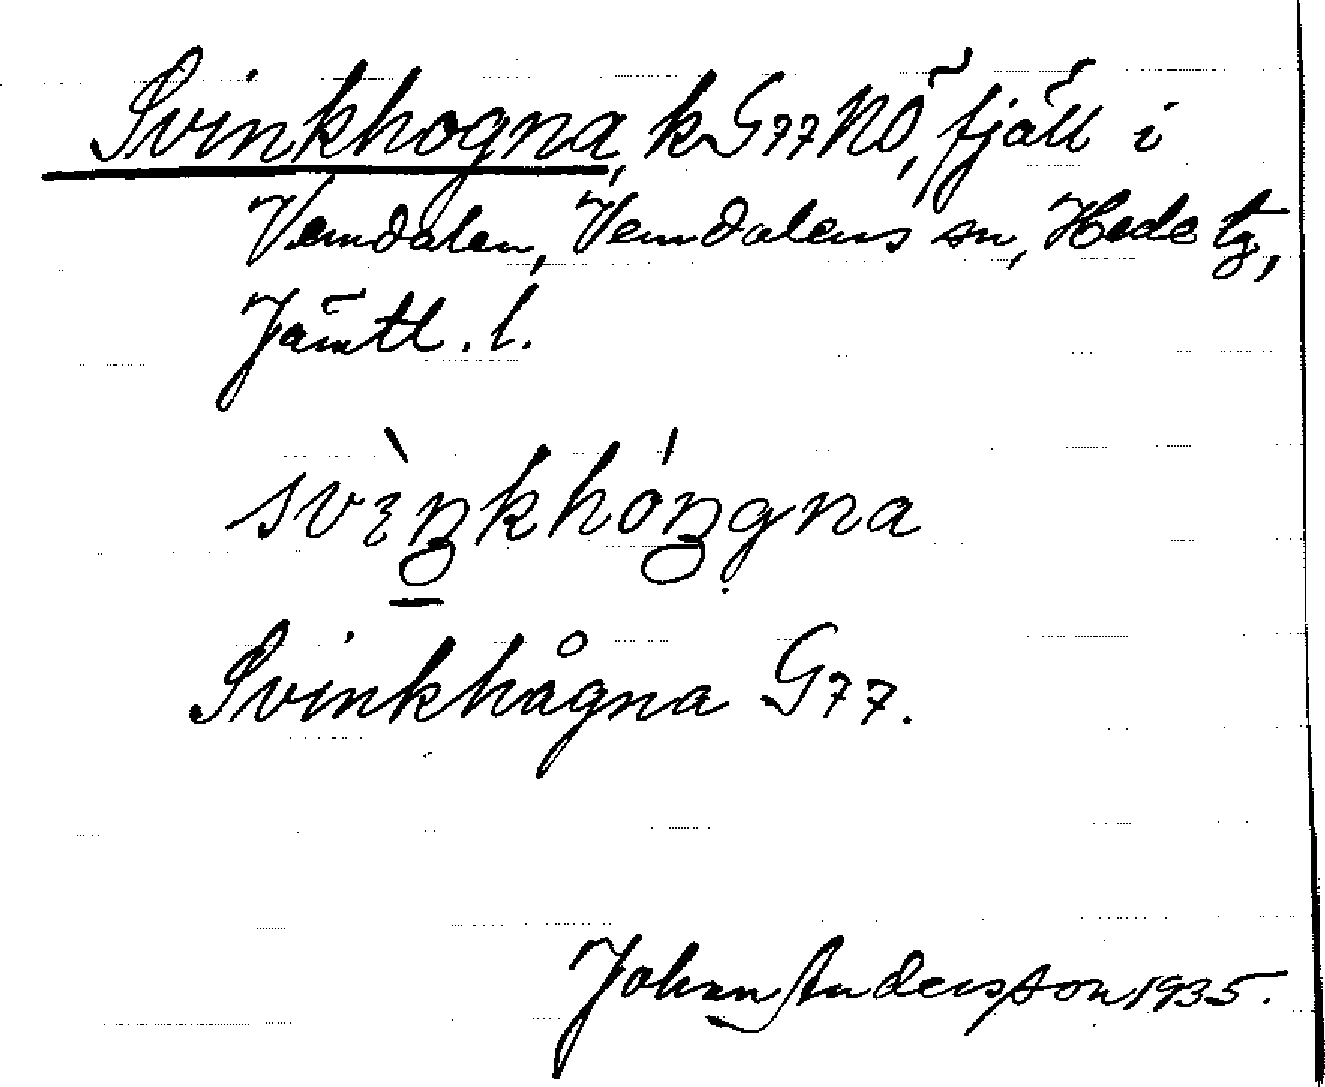 Svinkhogna, k G77NÖ, fjäll i
Vemdalen, Vemdalens sn, Hede tg,
Jämtl. l.
svìŋkhóŋgna
Svinkhågna G77.
Johan Andersson 1935.